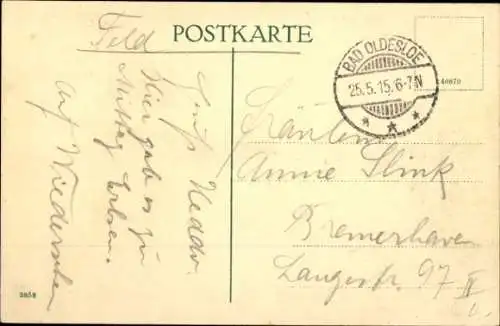 Feld
POSTKARTE
BAD OLDESLOE
25.5.15. 6-7 N
Hier gab es zu
Mittag Erbsen.
Auf Wiedersehen
Gruß
Fräulein
Annie Slink
Bremerhaven
Langestr. 97 II